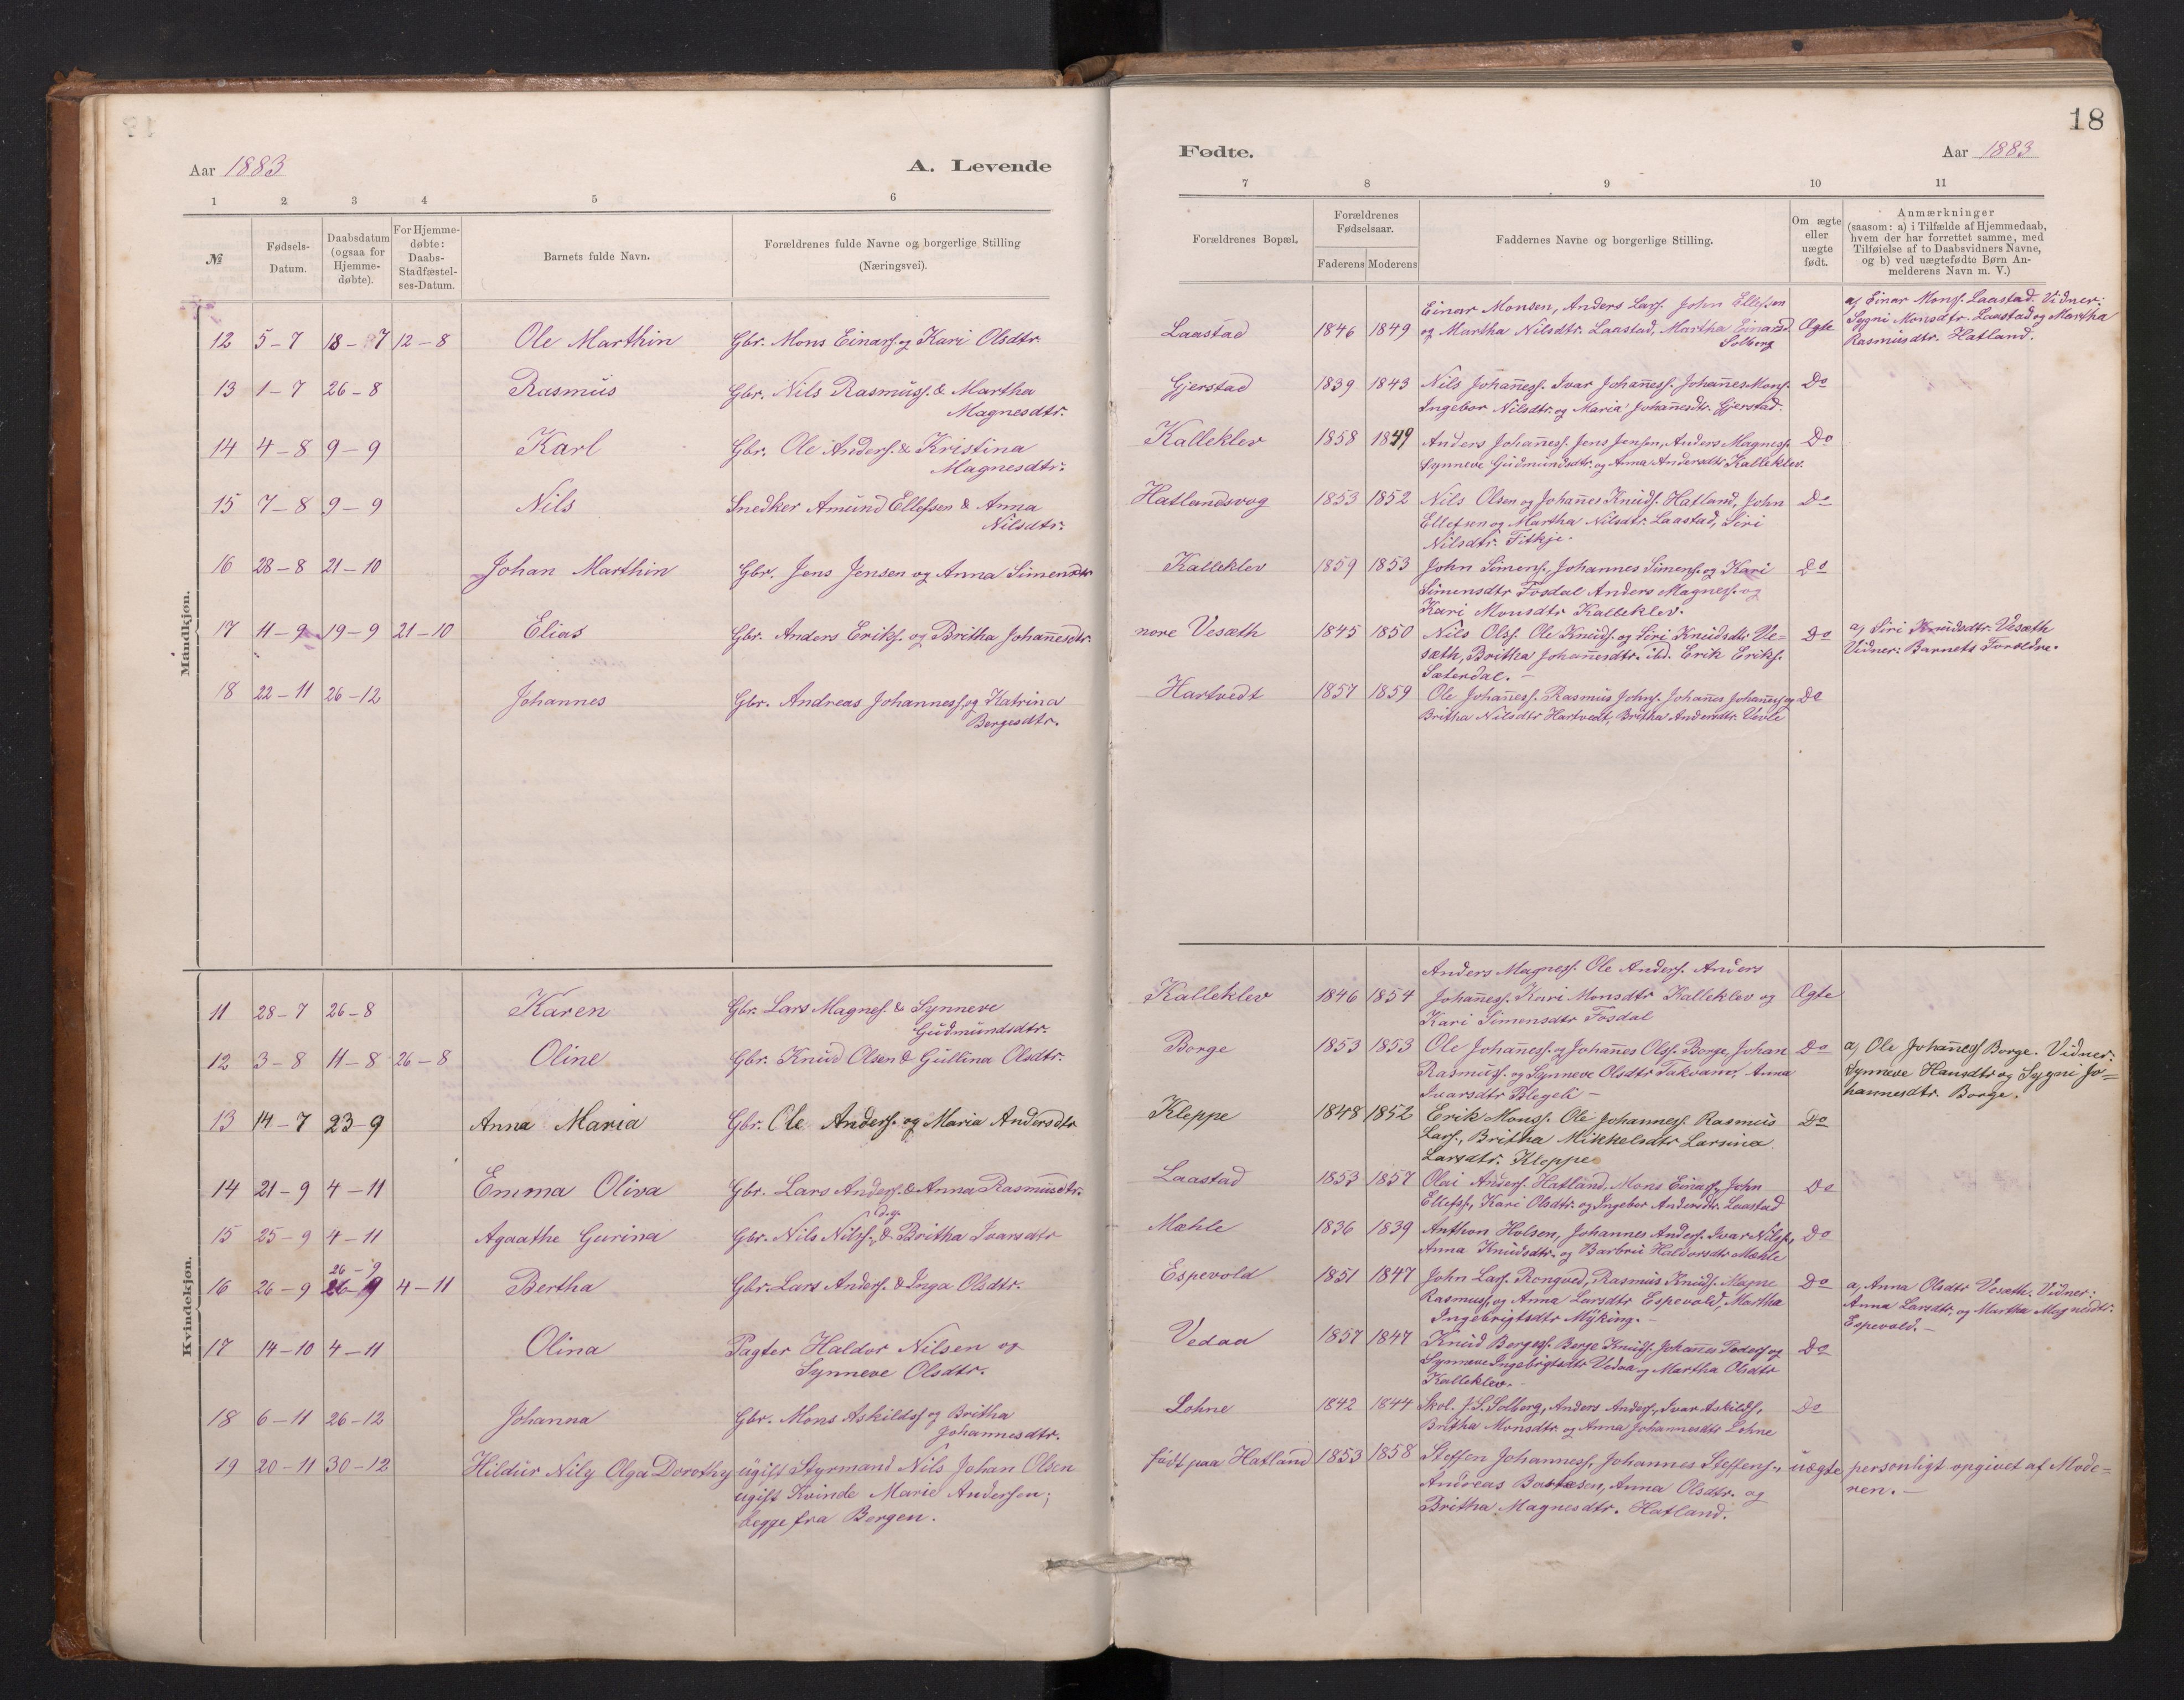 18
Aar 1883
A. Levende
Fødte.
Aar 1883
1 2 3 4 5 6 7 8 9 10 11
№
Fødsels-Datum.
Daabsdatum (ogsaa for Hjemme-døbte).
For Hjemme-døbte: Daabs-Stadfæstel-ses-Datum.
Barnets fulde Navn.
Forældrenes fulde Navne og borgerlige Stilling
(Næringsvei).
Forældrenes Bopæl.
Forældrenes Fødselsaar.
Faderens Moderens
Faddernes Navne og borgerlige Stilling.
Om ægte eller uægte født.
Anmærkninger
(saasom: a) i Tilfælde af Hjemmedaab,
hvem der har forrettet samme, med
Tilføielse af to Daabsvidners Navne,
og b) ved uægtefødte Børn An-
melderens Navn m. V.)
Mandkjøn.
12 5-7 18-7 12-8 Ole Marthin Gbr. Mons Einars. og Kari Olsdtr. Laastad 1846 1849
Einar Monsen, Anders Lars. John Ellefsen
og Martha Nilsdtr. Laastad, Martha Einarsd.
Solberg
Ægte
a) Einar Monss. Laastad. Vidner:
Sygni Monsdtr. Laastad og Martha
Rasmusdtr. Hatland.
13 1-7 26-8 Rasmus Gbr. Nils Rasmuss. & Martha
Magnesdtr.
Gjerstad 1839 1843 Nils Johaness. Ivar Johaness. Johanes Mons.
Ingebor Nilsdtr. og Maria Johanesdtr. Gjerstad.
Do
14 4-8 9-9 Karl Gbr. Ole Anders. & Kristina
Magnesdtr.
Kalleklev 1858 1849 Anders Johaness. Jens Jensen, Anders Magness.
Synneve Gudmundsdtr. og Anna Andersdtr Kalleklev.
Do
15 7-8 9-9 Nils Snedker Amund Ellefsen & Anna
Nilsdtr.
Hatlandsvog 1853 1852 Nils Olsen og Johanes Knuds. Hatland, John
Ellefsen og Martha Nilsdtr. Laastad, Siri
Nilsdtr. Titkje.
Do
16 28-8 21-10 Johan Marthin Gbr. Jens Jensen og Anna Simensdtr
Kalleklev 1859 1853 John Simens., Johannes Simens. og Kari
Simensdtr Fosdal Anders Magness. og
Kari Monsdtr Kalleklev.
Do
17 11-9 19-9 21-10 Elias Gbr. Anders Eriks. og Britha Johanesdtr.
nore Vesæth 1845 1850 Nils Olss. Ole Knuds. og Siri Knudsdtr. Ve-
sæth, Britha Johanesdtr. ibd. Erik Eriks.
Sæterdal.
Do
a) Siri Knudsdtr. Vesæth
Vidner: Barnets Forældre.
18 22-11 26-12 Johannes Gbr. Andreas Johanness. og Katrina
Børgesdtr.
Hartvedt 1857 1859 Ole Johaness. Rasmus Johns. Johanes Johaness. og
Britha Nilsdtr Hartvedt, Britha Andersdtr. Uvle
Do
Kvindekjøn.
11 28-7 26-8 Karen Gbr. Lars Magnes. & Synneve
Gudmundsdtr.
Kalleklev 1846 1854
Anders Magness. Ole Anders. Anders
Johaness. Kari Monsdtr Kalleklev og
Kari Simensdtr Fosdal
Ægte
12 3-8 11-8 26-8 Oline Gbr. Knud Olsen & Gullina Olsdtr.
Borge 1853 1853 Ole Johaness. og Johanes Olss. Borge, Johan
Rasmuss. og Synneve Olsdtr Takvam, Anna
Ivarsdtr Blegeli
Do
a) Ole Johaness Borge. Vidner:
Synneve Hansdtr og Sygni Jo-
hannesdtr. Borge.
13 14-7 23-9 Anna Maria Gbr. Ole Anders. og Maria Andersdtr
Kleppe 1848 1852 Erik Monss. Ole Johanness. Rasmus
Lars., Britha Mikkelsdtr Larsina
Larsdtr. Kleppe
Do
14 21-9 4-11 Emma Oliva Gbr. Lars Anders. & Anna Rasmusdtr.
Laastad 1853 1857 Olai Anders. Hatland. Mons Einars., John
Ellefss., Kari Olsdtr. og Ingebor Andersdtr. Laastad
Do
15 25-9 4-11 Agaathe Gurina Gbr. Nils Nilss. d.y. & Britha Ivarsdtr
Mæhle 1836 1839 Anthon Holsen, Johannes Anders. Ivar Nilss.,
Anna Knudsdtr. og Barbru Haldorsdtr Mæhle
Do
16 26-9 26-9 26-9 4-11 Bertha Gbr. Lars Anders. & Inga Olsdtr.
Espevold 1851 1847 John Lars. Rongved, Rasmus Knuds. Magne
Rasmuss. og Anna Larsdtr Espevold, Martha
Ingebrigtsdtr Myking.
Do
a, Anna Olsdtr Vesæth. Vidner:
Anna Larsdtr. og Martha Magnesdtr.
Espevold.
17 14-10 4-11 Olina Pagter Haldor Nilsen og
Synneve Olsdtr.
Vedaa 1857 1847 Knud Børgess. Børge Knuds. Johanes Peders. og
Synneve Ingebrigtsdtr Vedaa og Martha Olsdtr
Kalleklev.
Do
18 6-11 26-12 Johanna Gbr. Mons Askilds. og Britha
Johannesdtr.
Lohne 1842 1844 Skol. J. S. Solberg, Anders Anders., Ivar Askilds.,
Britha Monsdtr. og Anna Johannesdtr Lohne
Do
19 20-11 30-12 Hildur Nily Olga Dorothy ugift Styrmand Nils Johan Olsen
ugift Kvinde Marie Andersen;
begge fra Bergen.
født paa Hatland 1853 1858 Steffen Johanness., Johannes Steffens.,
Andreas Bastesen, Anna Olsdtr. og
Britha Magnesdtr. Hatland.
uægte
personligt opgivet af Mode-
ren.